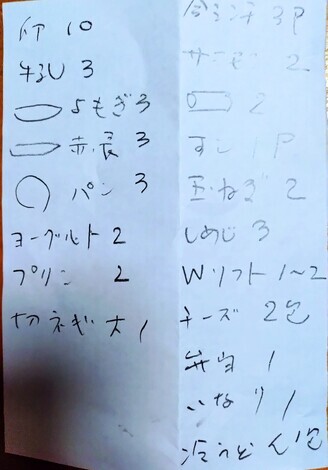 10
牛乳 3
よもぎ 3
赤長 3
パン 3
ヨーグルト 2
プリン 2
切ネギ 大 1
3P
2
2
すし 1P
玉ねぎ 2
しめじ 3
Wソフト 1〜2
チーズ 2包
弁当 1
いなり 1
冷うどん 1包